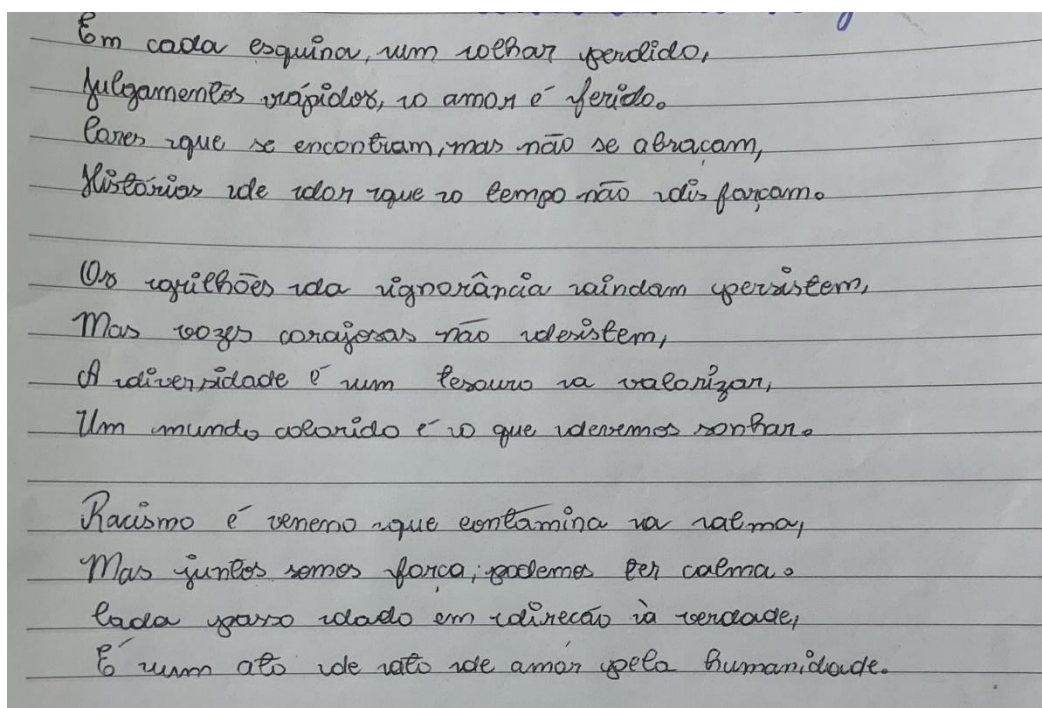 Em cada esquina, um olhar perdido,
Julgamentos rápidos, o amor é ferido.
Cores que se encontram, mas não se abraçam,
Histórias de dor que o tempo não disfarçam.
Os grilhões da ignorância aindam persistem,
Mas vozes corajosas não desistem,
A diversidade é um tesouro a valorizar,
Um mundo colorido é o que devemos sonhar.
Racismo é venemo que contamina a alma,
Mas juntos somos força, podemos ter calma.
Cada passo dado em direcão à verdade,
É um ato de ato de amor pela humanidade.